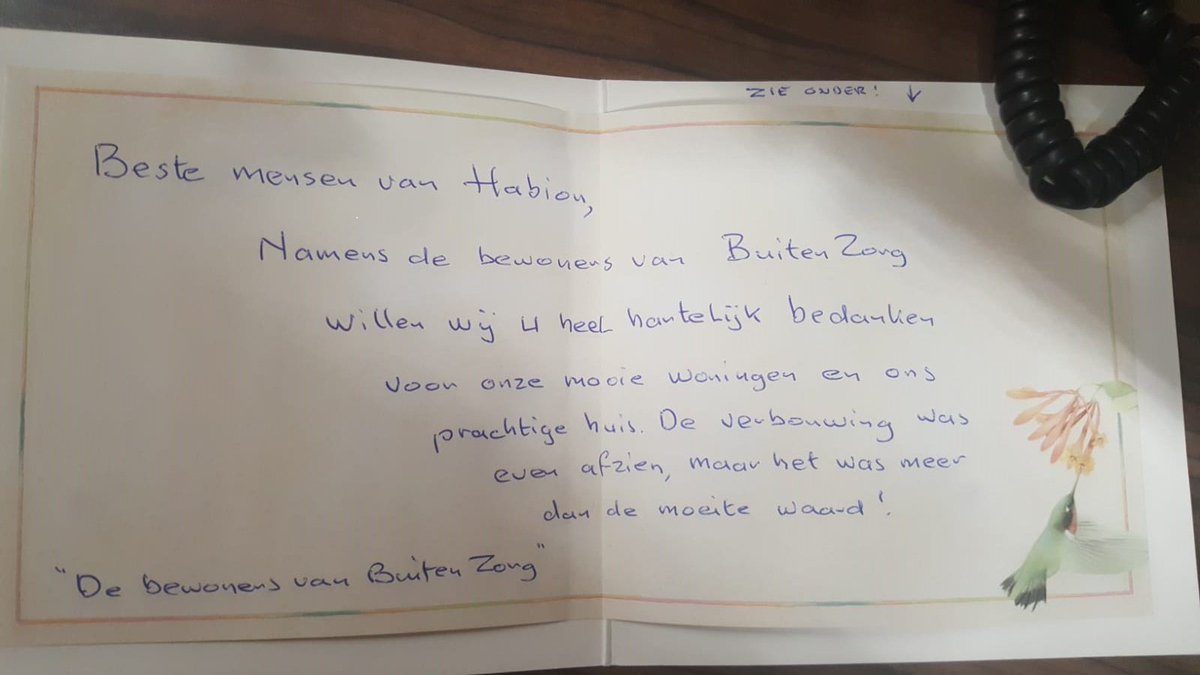 ZIE ONDER! ↓
Beste mensen van Habion,
Namens de bewoners van Buiten Zorg
willen wij u heel hartelijk bedanken
voor onze mooie woningen en ons
prachtige huis. De verbouwing was
even afzien, maar het was meer
dan de moeite waard!
"De bewoners van Buiten Zorg"